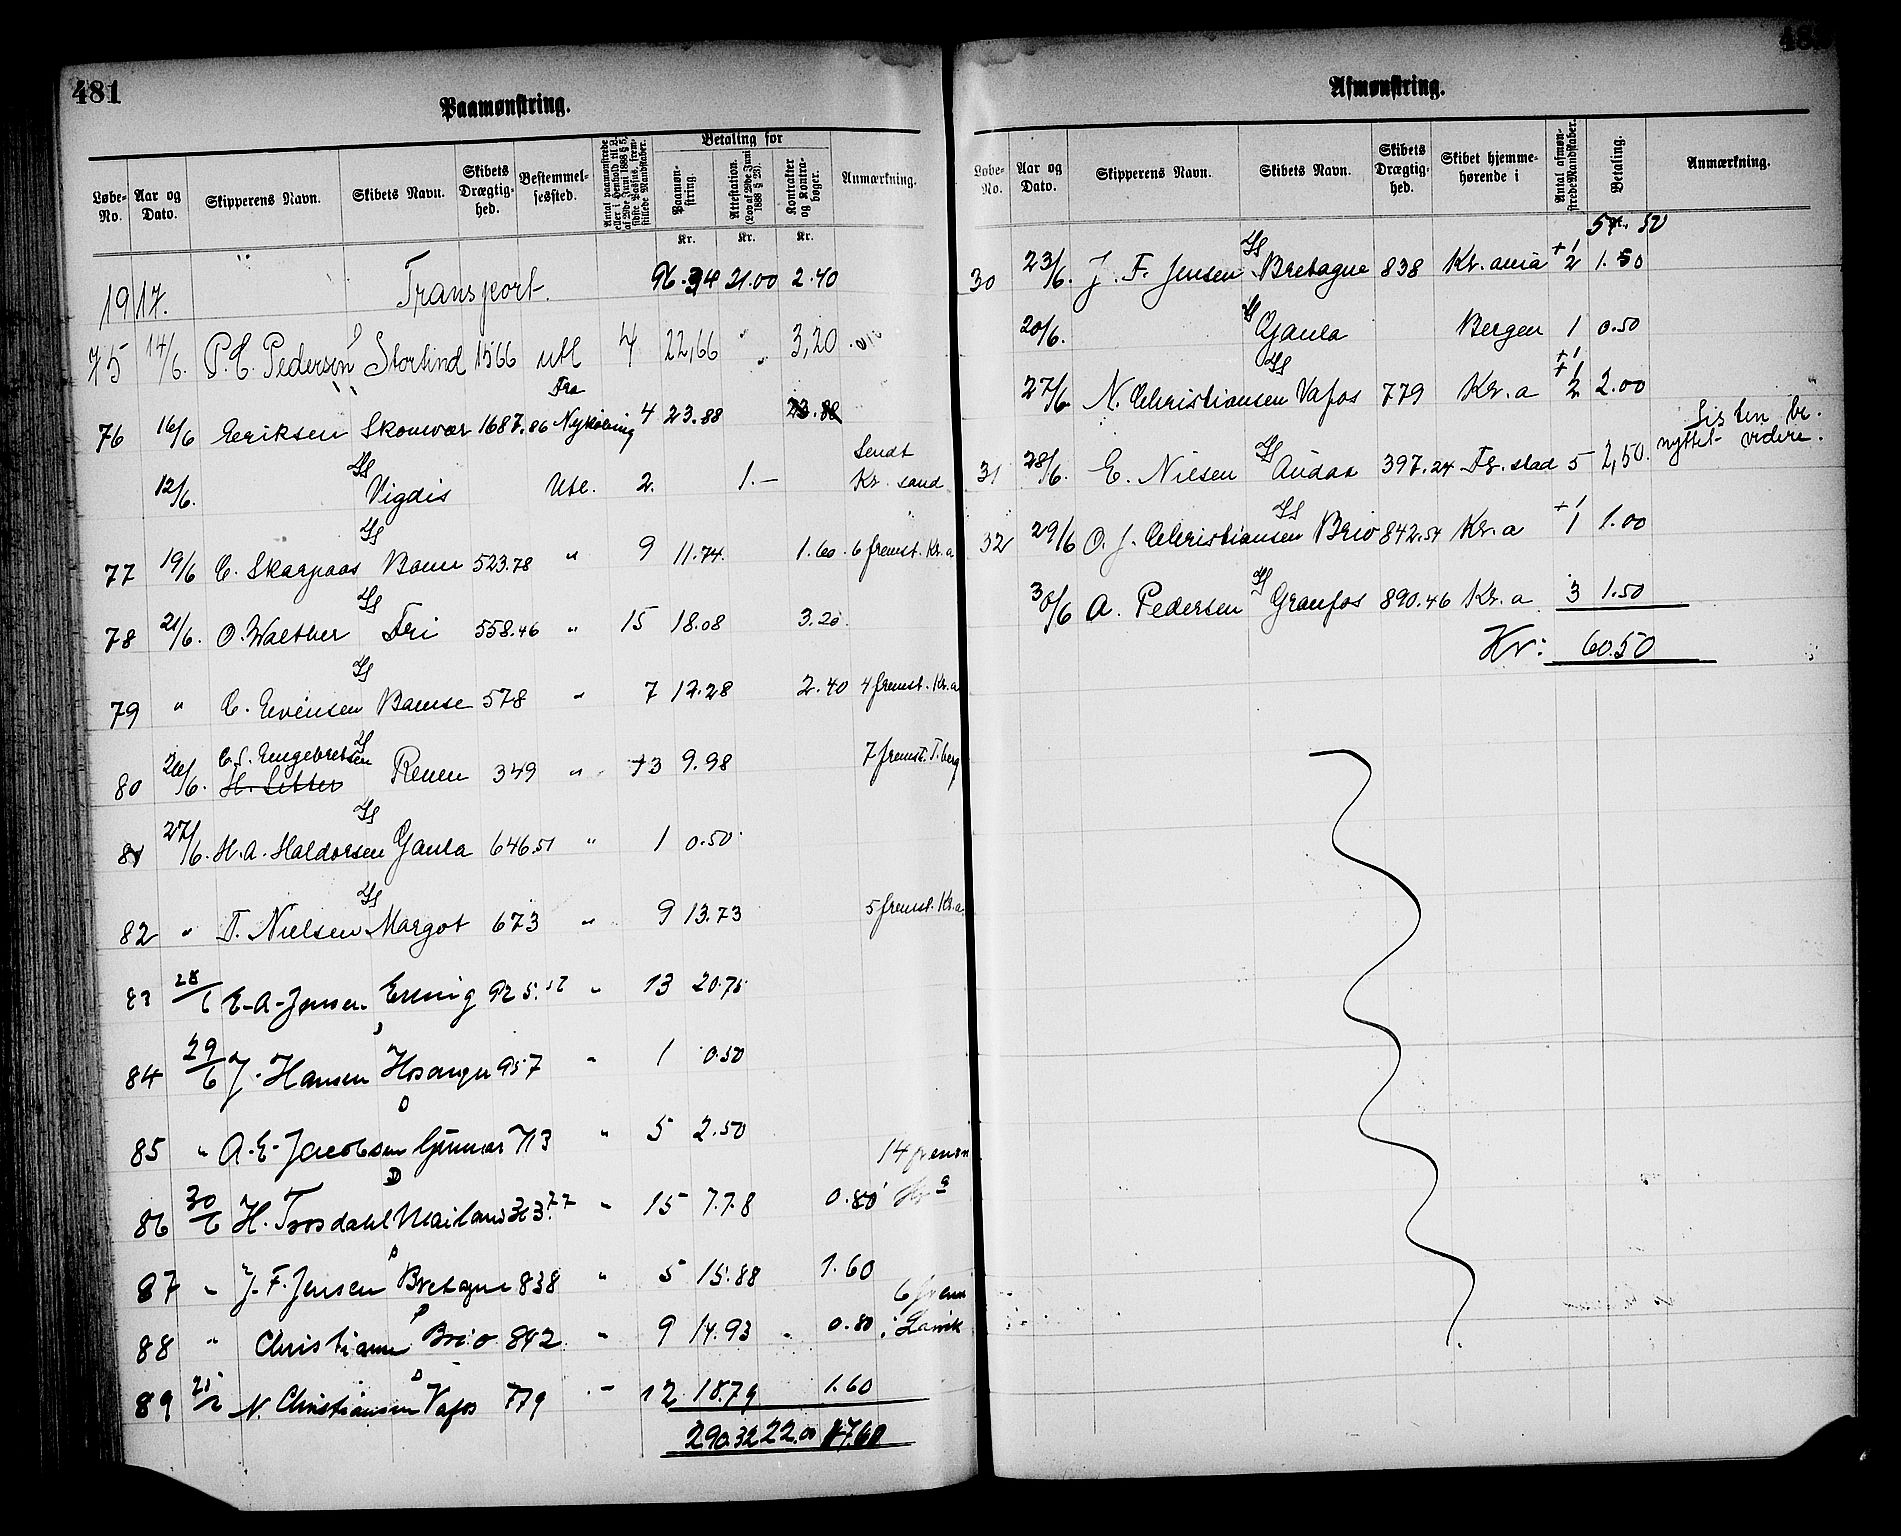 481
Paamønstring.
Løbe-No. Aar og Dato. Skipperens Navn. Skibets Navn. Skibets Drægtighed. Bestemmelsessted. Antal paamønstrede eller i Henhold til Lov af 29de Juni 1888 § 5, sidste Passus, fremstillede Mandskaber. Betaling for Paamønstring. Attestation. (Lov af 29de Juni 1888 § 23). Kontrakter og Kontrabøger. Anmærkning.
Kr. Kr. Kr.
1917. Transport. 96.34 21.00 2.40
75 14/6. P.C. Pedersen D Storlind 1566 utl 4 22,66 " " 3,20
76 16/6 Eeriksen Skomvær 1687.86 Fra Nykøbing 4 23.88 23.88
12/6. Ds Vigdis Utl. 2. 1.— Sendt Kr. sand
77 19/6 C. Skarpaas Ds Bamse 523.78 " 9 11.74. 1.60. 6 fremst. Kr.a
78 21/6. O. Walther Ds Fri 558.46 " 15 18.08 3.20.
79 " C. Evensen Ds Bamse 578 " 7 17.28 2.40 4 fremst. Kr.a
80 26/6. C.S. Engebretsen H. Setter Ds Renen 349 " 13 9.98 7 fremst. T.berg
81 27/6. H.A. Haldorsen Ds Gaula 646.51 " 1 0.50
82 " T. Nielsen Ds Margot 673 " 9 13.73 5 fremst. Kr.a
83 28/6 E-A-Jensen Erling 925.52 " 13 20.75
84 29/6 J. Hansen D Hosanger 957 " 1 0.50
85 " A.E. Jacobsen D Gunnar 713 " 5 2.50
86 30/6 H. Trosdahl D Mailand " 15 7.78 0.80 14 fremst Kr a
87 " J.F. Jensen D Bretagne 838 " 5 15.88 1.60
88 " Christiansen D Brio 842 " 9 14.93 " 0.80 6 frem i Larvik
89 N. Christiansen D Vafos 779 " 12 18.79 1.60
290.32 22.00 17.60
Afmønstring.
Løbe-No. Aar og Dato. Skipperens Navn. Skibets Navn. Skibets Drægtighed. Skibet hjemmehørende i Antal afmønstrede Mandskaber. Betaling. Anmærkning.
30 23/6. J. F. Jensen Ds Bretagne 838 Kr. ania +1 2 1.50
20/6. Ds Gaula Bergen 1 0.50
27/6 N. Christiansen Ds Vafos 779 Kr. a +1 +1 2 2.00
31 28/6. E. Nilsen Ds Audax 397.24 Fr. stad 5 2,50. Listen benyttet videre.
32 29/6 O. J. Christiansen Ds Brio 842.54 Kr. a +1 1 1.00
30/6 A. Pedersen Ds Granfos 890.46 Kr. a 3 1.50
Kr: 60.50